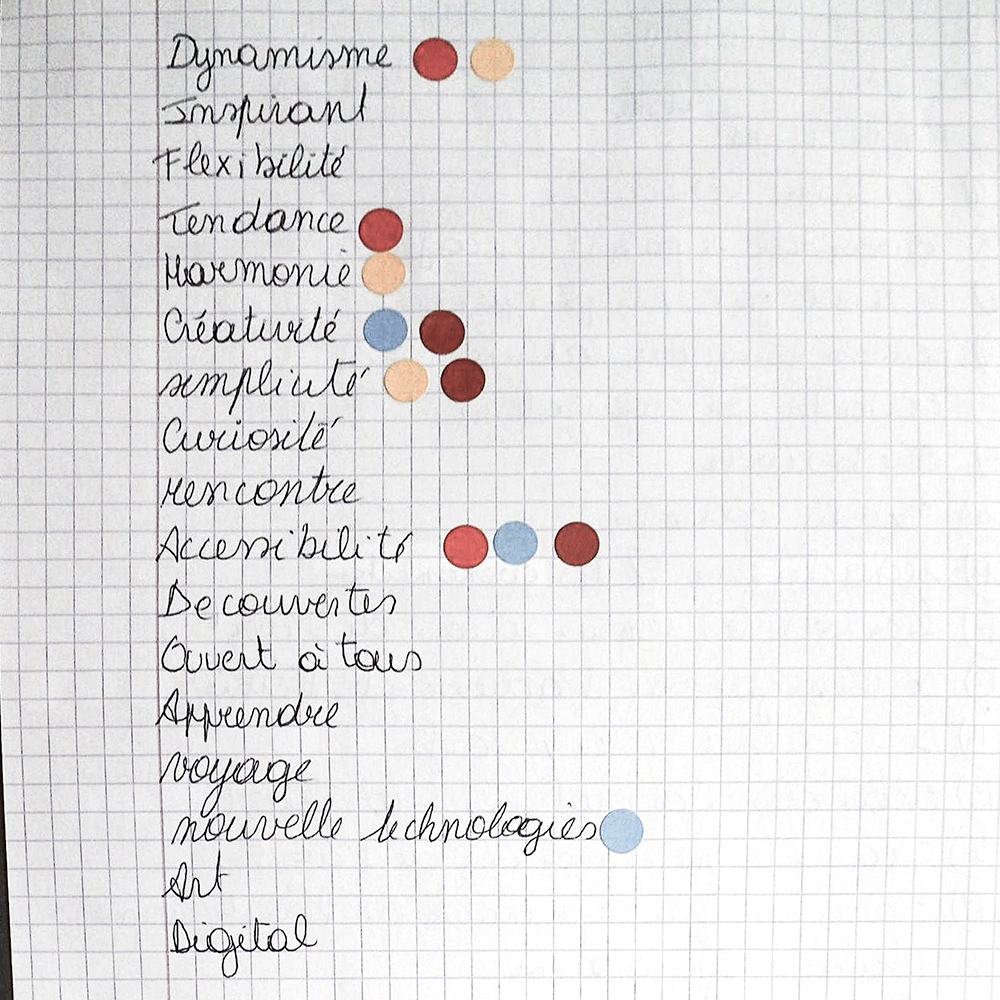 Dynamisme
Inspirant
Flexibilité
Tendance
Harmonie
Créativité
simplicité
Curiosité
rencontre
Accessibilité
Decouvertes
Ouvert à tous
Apprendre
voyage
nouvelle technologies
Art
Digital